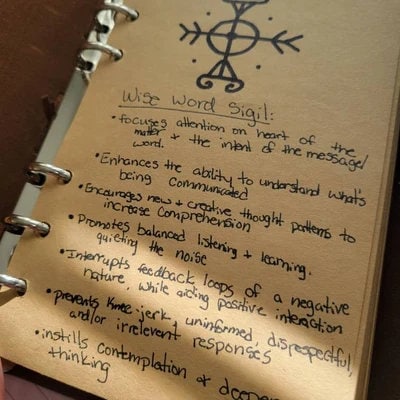 Wise Word Sigil:
• focuses attention on heart of the
matter + the intent of the message/
word.
• Enhances the ability to understand what's
being communicated
• Encourages new + creative thought patterns to
increase comprehension
• Promotes balanced listening + learning.
quieting the noise
• Interrupts feedback loops of a negative
nature, while aiding positive interaction
• prevents knee-jerk, uninformed, disrespectful,
and/or irrelevent responses
• instills contemplation + deeper
thinking